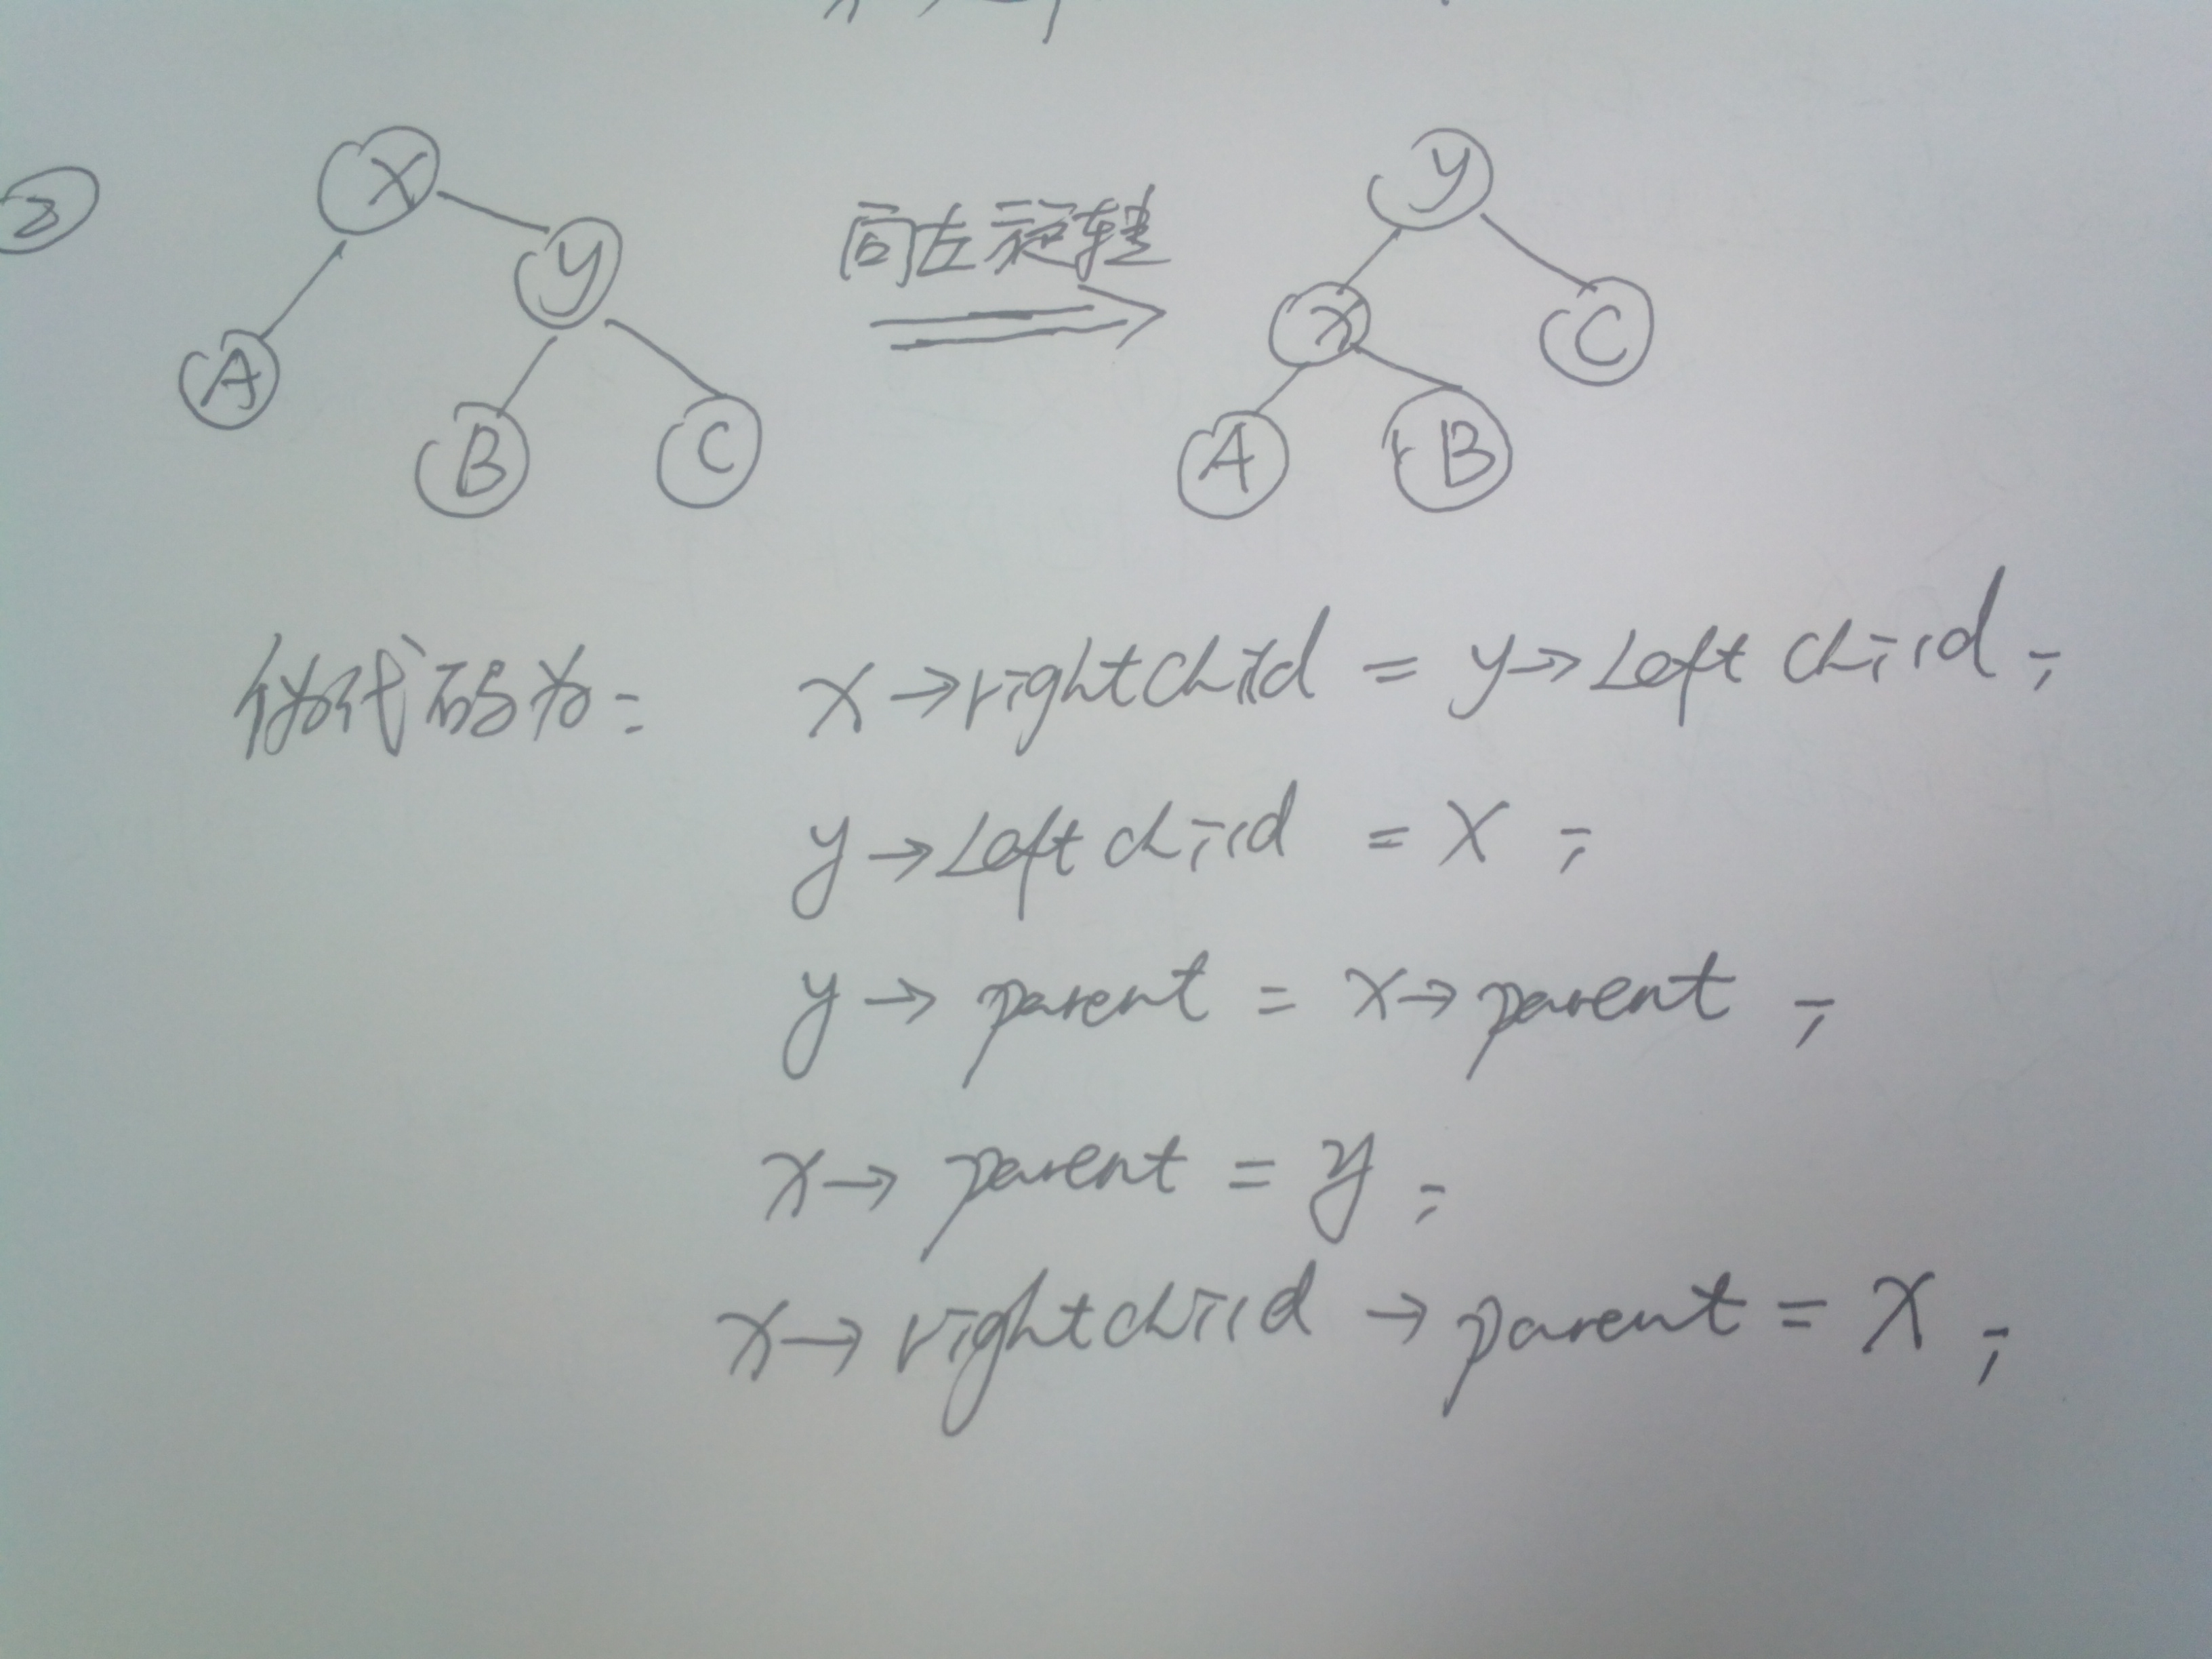 ②
X
y
A
B
C
向左旋转
y
x
C
A
B
伪代码为: x→rightchild = y→Leftchild;
y→Leftchild = X;
y→parent = x→parent;
x→parent = y;
x→rightchild→parent = X;